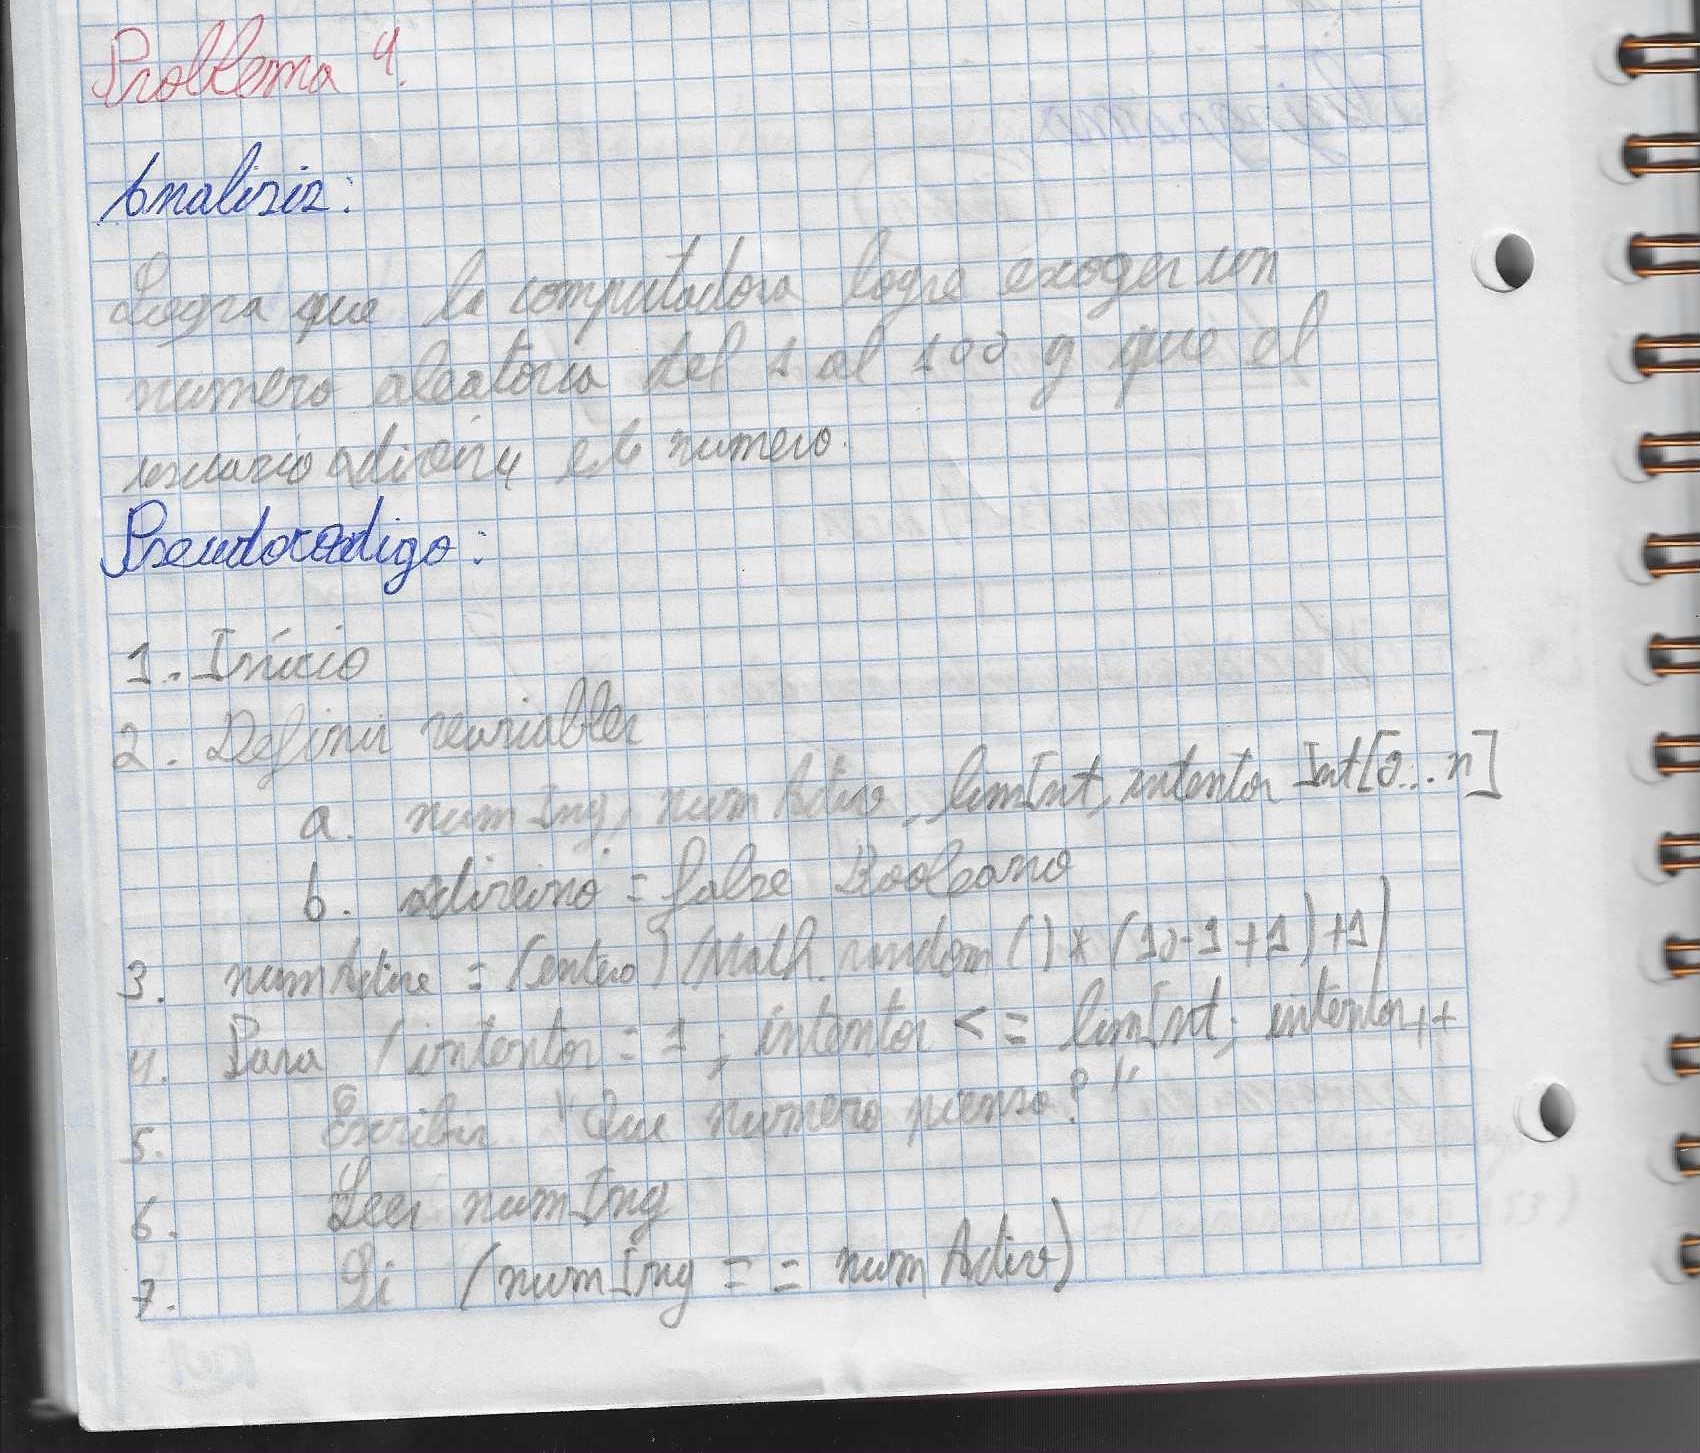 Problema 4.
Analisis:
Logra que la computadora logre exoger un
numero aleatorio del 1 al 100 y que el
usuario adivine el numero.
Pseudocodigo:
1. Inicio
2. Definir variables
a. numIng, numAdivo, limInt, intentos Int[0...n]
b. adivino = false Booleano
3. numAdive = (entero) (Math.random() * (10-1+1)+1)
4. Para (intentos = 1; intentos <= limInt; intentos++
5. Escribir "Que numero pienso?"
6. Leer numIng
7. Si (numIng == numAdivo)